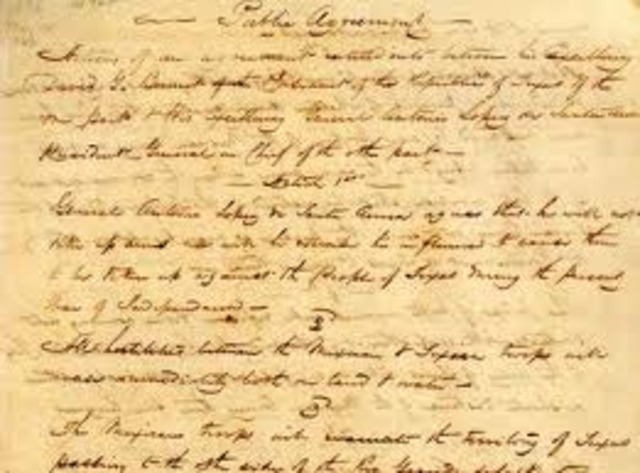 Public Agreement
Articles of an agreement entered into between his Excellency
David G. Burnet of the Republic of Texas of the
one part & His Excellency General Antonio Lopez de Santa Anna
President General in Chief of the other part
Article 1st
General Antonio Lopez de Santa Anna agrees that he will not
take up arms nor will he exercise his influence to cause them
to be taken up against the People of Texas during the present
War of Independence
2
All hostilities between the Mexican & Texian troops will
cease immediately both on land & water
3
The Mexican troops will evacuate the territory of Texas
passing to the other side of the Rio Grande